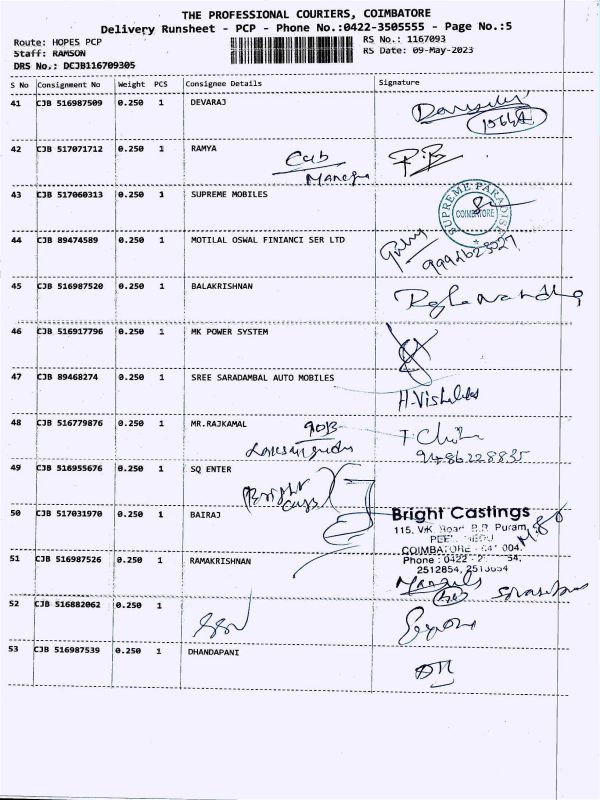 THE PROFESSIONAL COURIERS, COIMBATORE
Delivery Runsheet - PCP - Phone No.:0422-3505555 - Page No.:5
Route: HOPES PCP
RS No.: 1167093
Staff: RAMSON
RS Date: 09-May-2023
DRS No.: DCJB116709305
S No Consignment No Weight PCS Consignee Details Signature
41 CJB 516987509 0.250 1 DEVARAJ
42 CJB 517071712 0.250 1 RAMYA
43 CJB 517060313 0.250 1 SUPREME MOBILES
SUPREME PARADISE
COIMBATORE
44 CJB 89474589 0.250 1 MOTILAL OSWAL FINIANCI SER LTD
45 CJB 516987520 0.250 1 BALAKRISHNAN
46 CJB 516917796 0.250 1 MK POWER SYSTEM
47 CJB 89468274 0.250 1 SREE SARADAMBAL AUTO MOBILES
48 CJB 516779876 0.250 1 MR.RAJKAMAL
49 CJB 516955676 0.250 1 SQ ENTER
Bright
50 CJB 517031970 0.250 1 BAIRAJ
Bright Castings
115, V.K. Road, B.R. Puram,
COIMBATORE 641 004.
Phone : 0422
51 CJB 516987526 0.250 1 RAMAKRISHNAN
52 CJB 516882062 0.250 1
53 CJB 516987539 0.250 1 DHANDAPANI